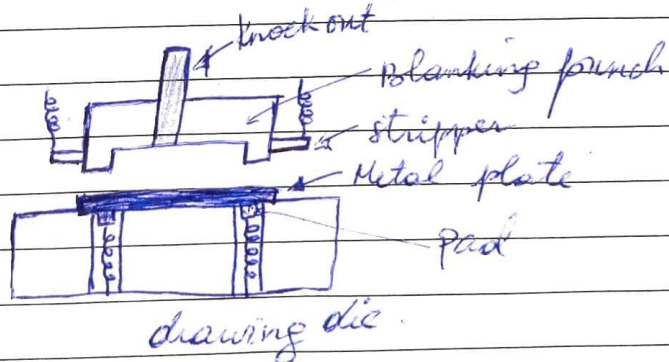 Knock out
Blanking punch
stripper
Metal plate
pad
drawing die.